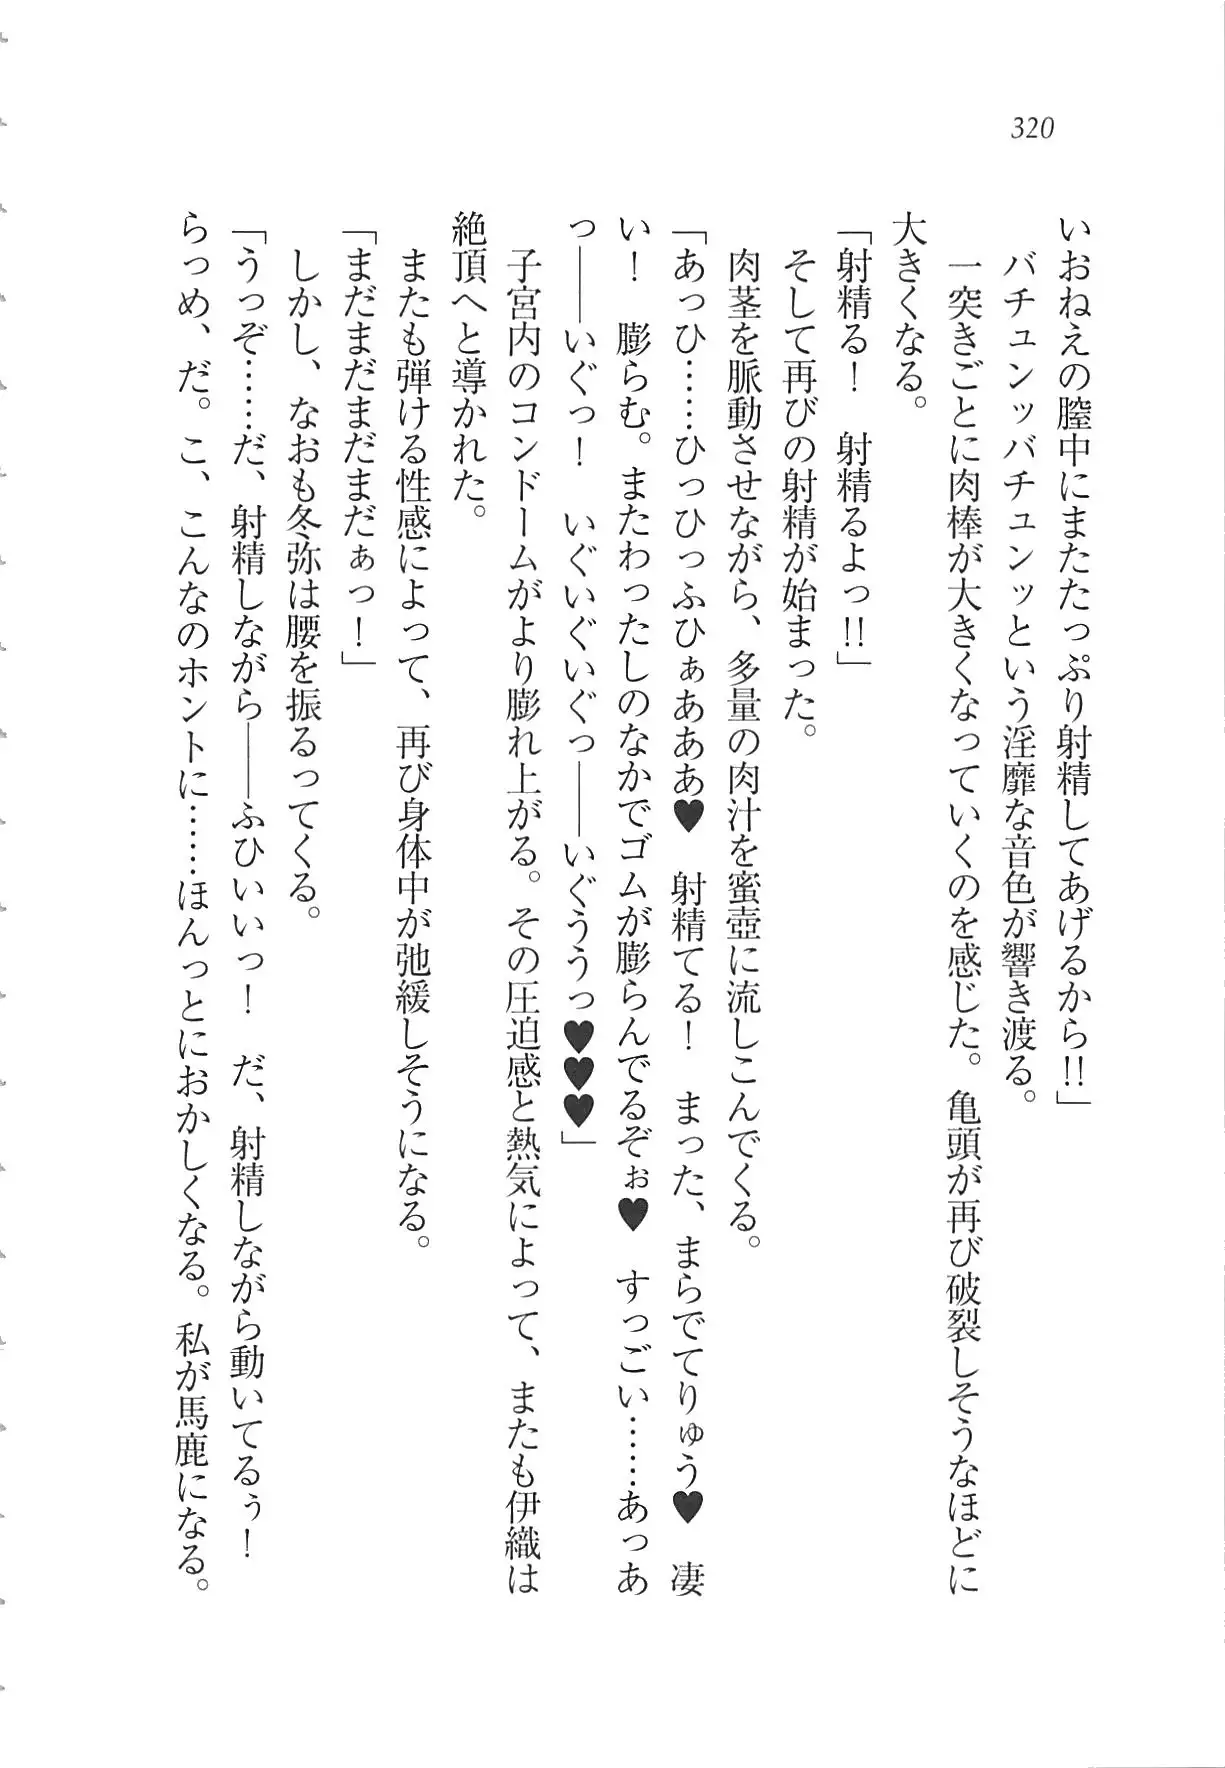 320
いおねえの膣中にまたたっぷり射精してあげるから!!」
バチュンッバチュンッという淫靡な音色が響き渡る。
一突きごとに肉棒が大きくなっていくのを感じた。亀頭が再び破裂しそうなほどに
大きくなる。
「射精る！　射精るよっ!!」
そして再びの射精が始まった。
肉茎を脈動させながら、多量の肉汁を蜜壺に流しこんでくる。
「あっひ……ひっひっふひぁあああ♥　射精てる！　まった、まらでてりゅう♥　凄
い！　膨らむ。またわったしのなかでゴムが膨らんでるぞぉ♥　すっごい……あっあ
っ――いぐっ！　いぐいぐいぐっ――いぐううっ♥♥♥」
子宮内のコンドームがより膨れ上がる。その圧迫感と熱気によって、またも伊織は
絶頂へと導かれた。
またも弾ける性感によって、再び身体中が弛緩しそうになる。
「まだまだまだまだぁっ！」
しかし、なおも冬弥は腰を振るってくる。
「うっぞ……だ、射精しながら――ふひいいっ！　だ、射精しながら動いてるぅ！
らっめ、だ。こ、こんなのホントに……ほんっとにおかしくなる。私が馬鹿になる。